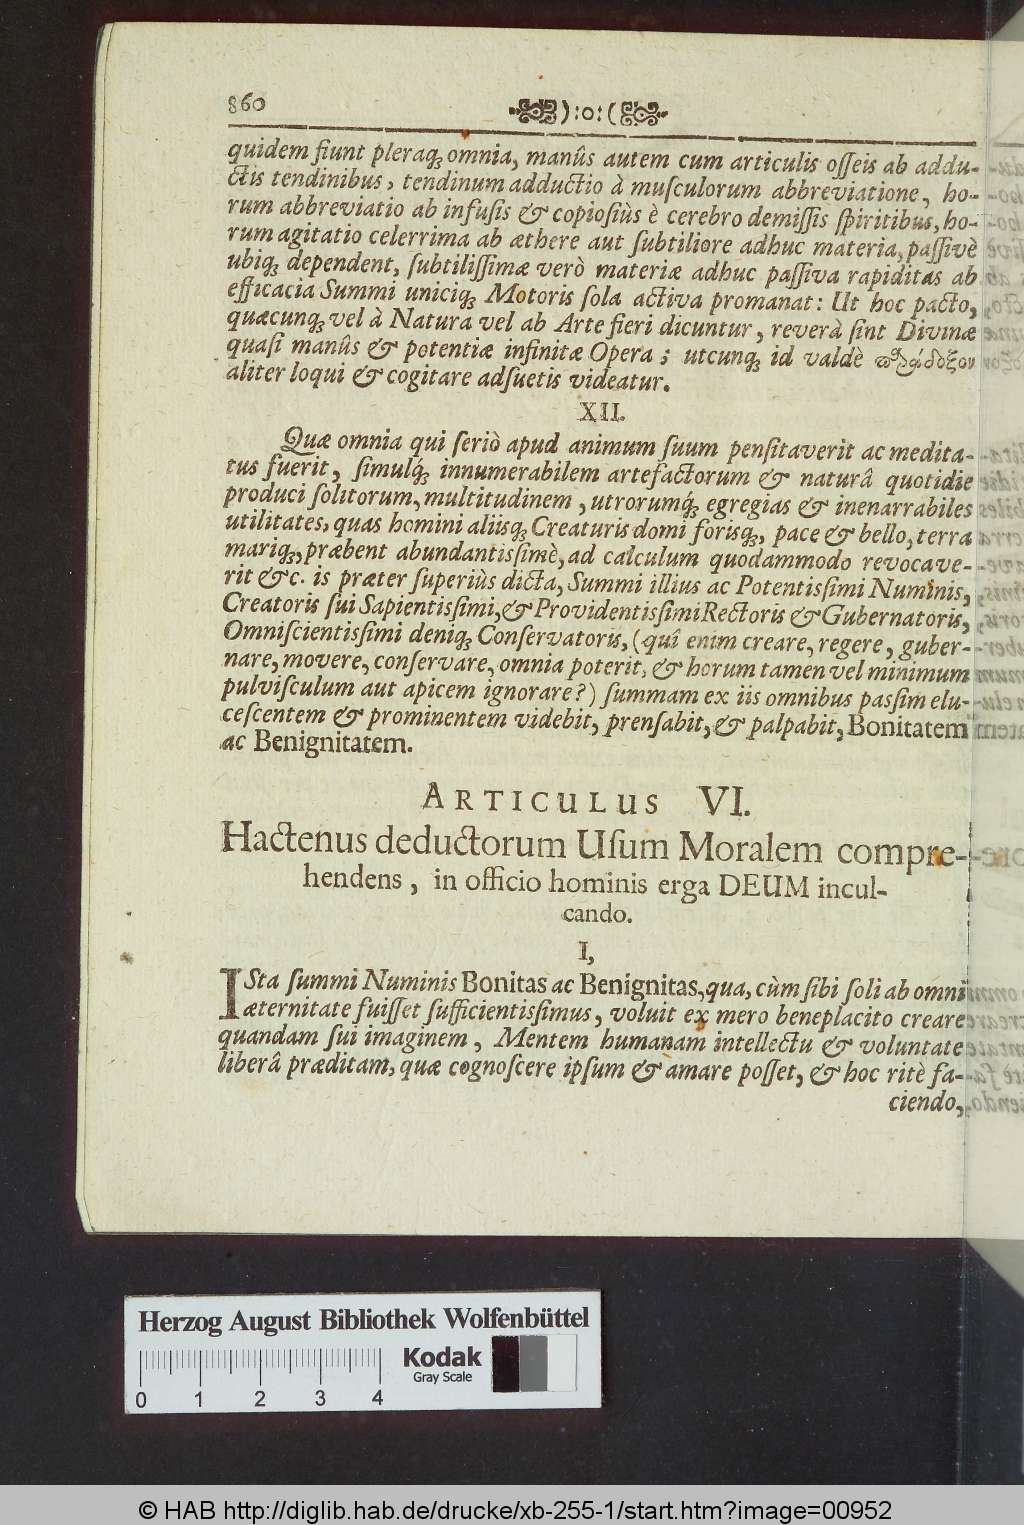 860 ):o:(
quidem fiunt pleraq́; omnia, manûs autem cum articulis oſſeis ab addu-
ctis tendinibus, tendinum adductio à muſculorum abbreviatione, ho-
rum abbreviatio ab infuſis & copioſiùs è cerebro demiſſis ſpiritibus, ho-
rum agitatio celerrima ab æthere aut ſubtiliore adhuc materia, paſſivè
ubiq; dependent, ſubtiliſſimæ verò materiæ adhuc paſſiva rapiditas ab
efficacia Summi uniciq; Motoris ſola activa promanat: Ut hoc pacto,
quæcunq; vel à Natura vel ab Arte fieri dicuntur, reverà ſint Divinæ
quaſi manûs & potentiæ infinitæ Opera; utcunq; id valdè παράδοξον
aliter loqui & cogitare adſuetis videatur.
XII.
Quæ omnia qui ſeriò apud animum ſuum penſitaverit ac medita-
tus fuerit, ſimulq́; innumerabilem artefactorum & naturâ quotidie
produci ſolitorum, multitudinem, utrorumq́; egregias & inenarrabiles
utilitates, quas homini aliisq; Creaturis domi forisq;, pace & bello, terra
mariq;, præbent abundantisſimè, ad calculum quodammodo revocave-
rit &c. is præter ſuperiùs dicta, Summi illius ac Potentisſimi Numinis,
Creatoris ſui Sapientisſimi, & Providentisſimi Rectoris & Gubernatoris,
Omniſcientisſimi deniq; Conſervatoris, (quî enim creare, regere, guber-
nare, movere, conſervare, omnia poterit, & horum tamen vel minimum
pulviſculum aut apicem ignorare?) ſummam ex iis omnibus paſſim elu-
ceſcentem & prominentem videbit, prenſabit, & palpabit, Bonitatem
ac Benignitatem.
ARTICULUS VI.
Hactenus deductorum Uſum Moralem compre-
hendens, in officio hominis erga DEUM incul-
cando.
I,
ISta ſummi Numinis Bonitas ac Benignitas, qua, cùm ſibi ſoli ab omni
æternitate fuiſſet ſufficientisſimus, voluit ex mero beneplacito creare
quandam ſui imaginem, Mentem humanam intellectu & voluntate
liberâ præditam, quæ cognoſcere ipſum & amare poſſet, & hoc ritè fa-
ciendo,
Herzog August Bibliothek Wolfenbüttel
Kodak
Gray Scale
0 1 2 3 4
© HAB http://diglib.hab.de/drucke/xb-255-1/start.htm?image=00952